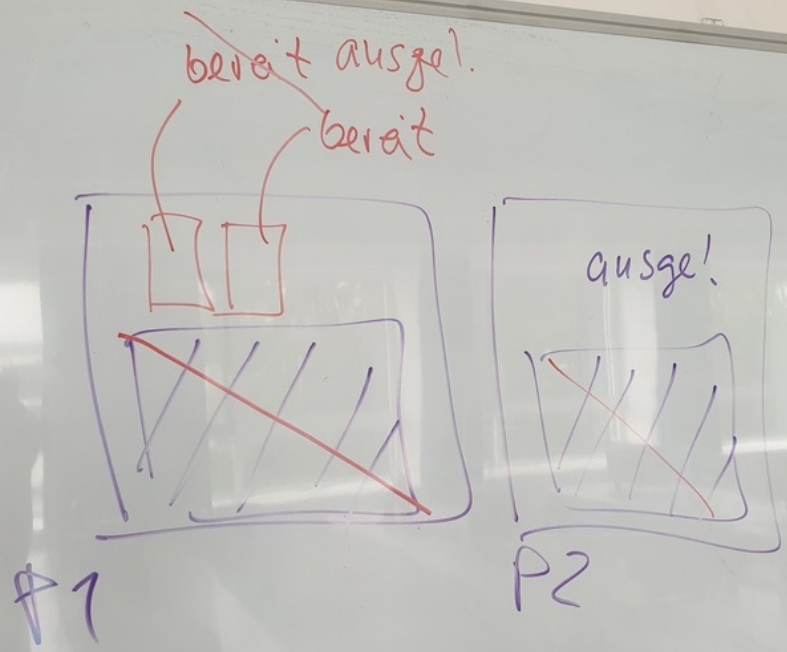 bereit ausge!.
bereit
ausge!
P1
P2